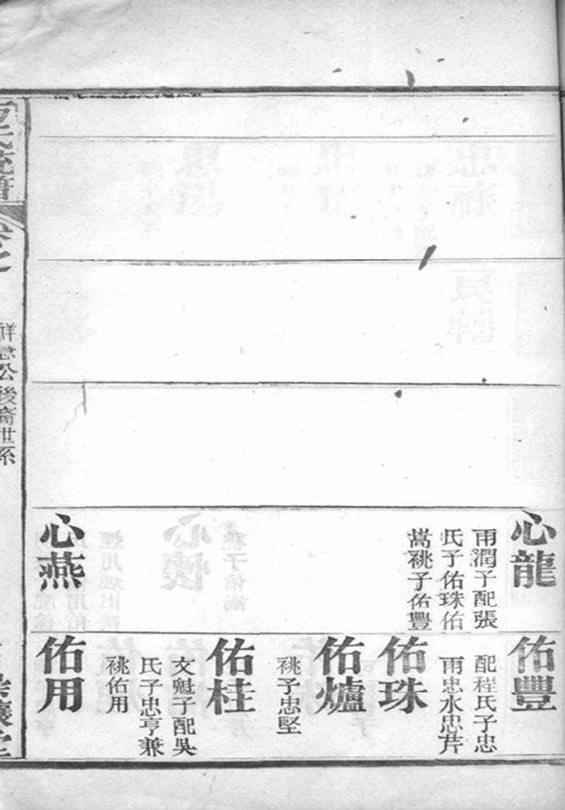 心龍
雨潤子配張
氏子佑珠佑
嵩祧子佑豐
心燕
佑豐
配程氏子忠
雨忠水忠芹
佑珠
佑爐
祧子忠堅
佑桂
文魁子配吳
氏子忠亨兼
祧佑用
佑用
氏統譜
祥
公後裔世系